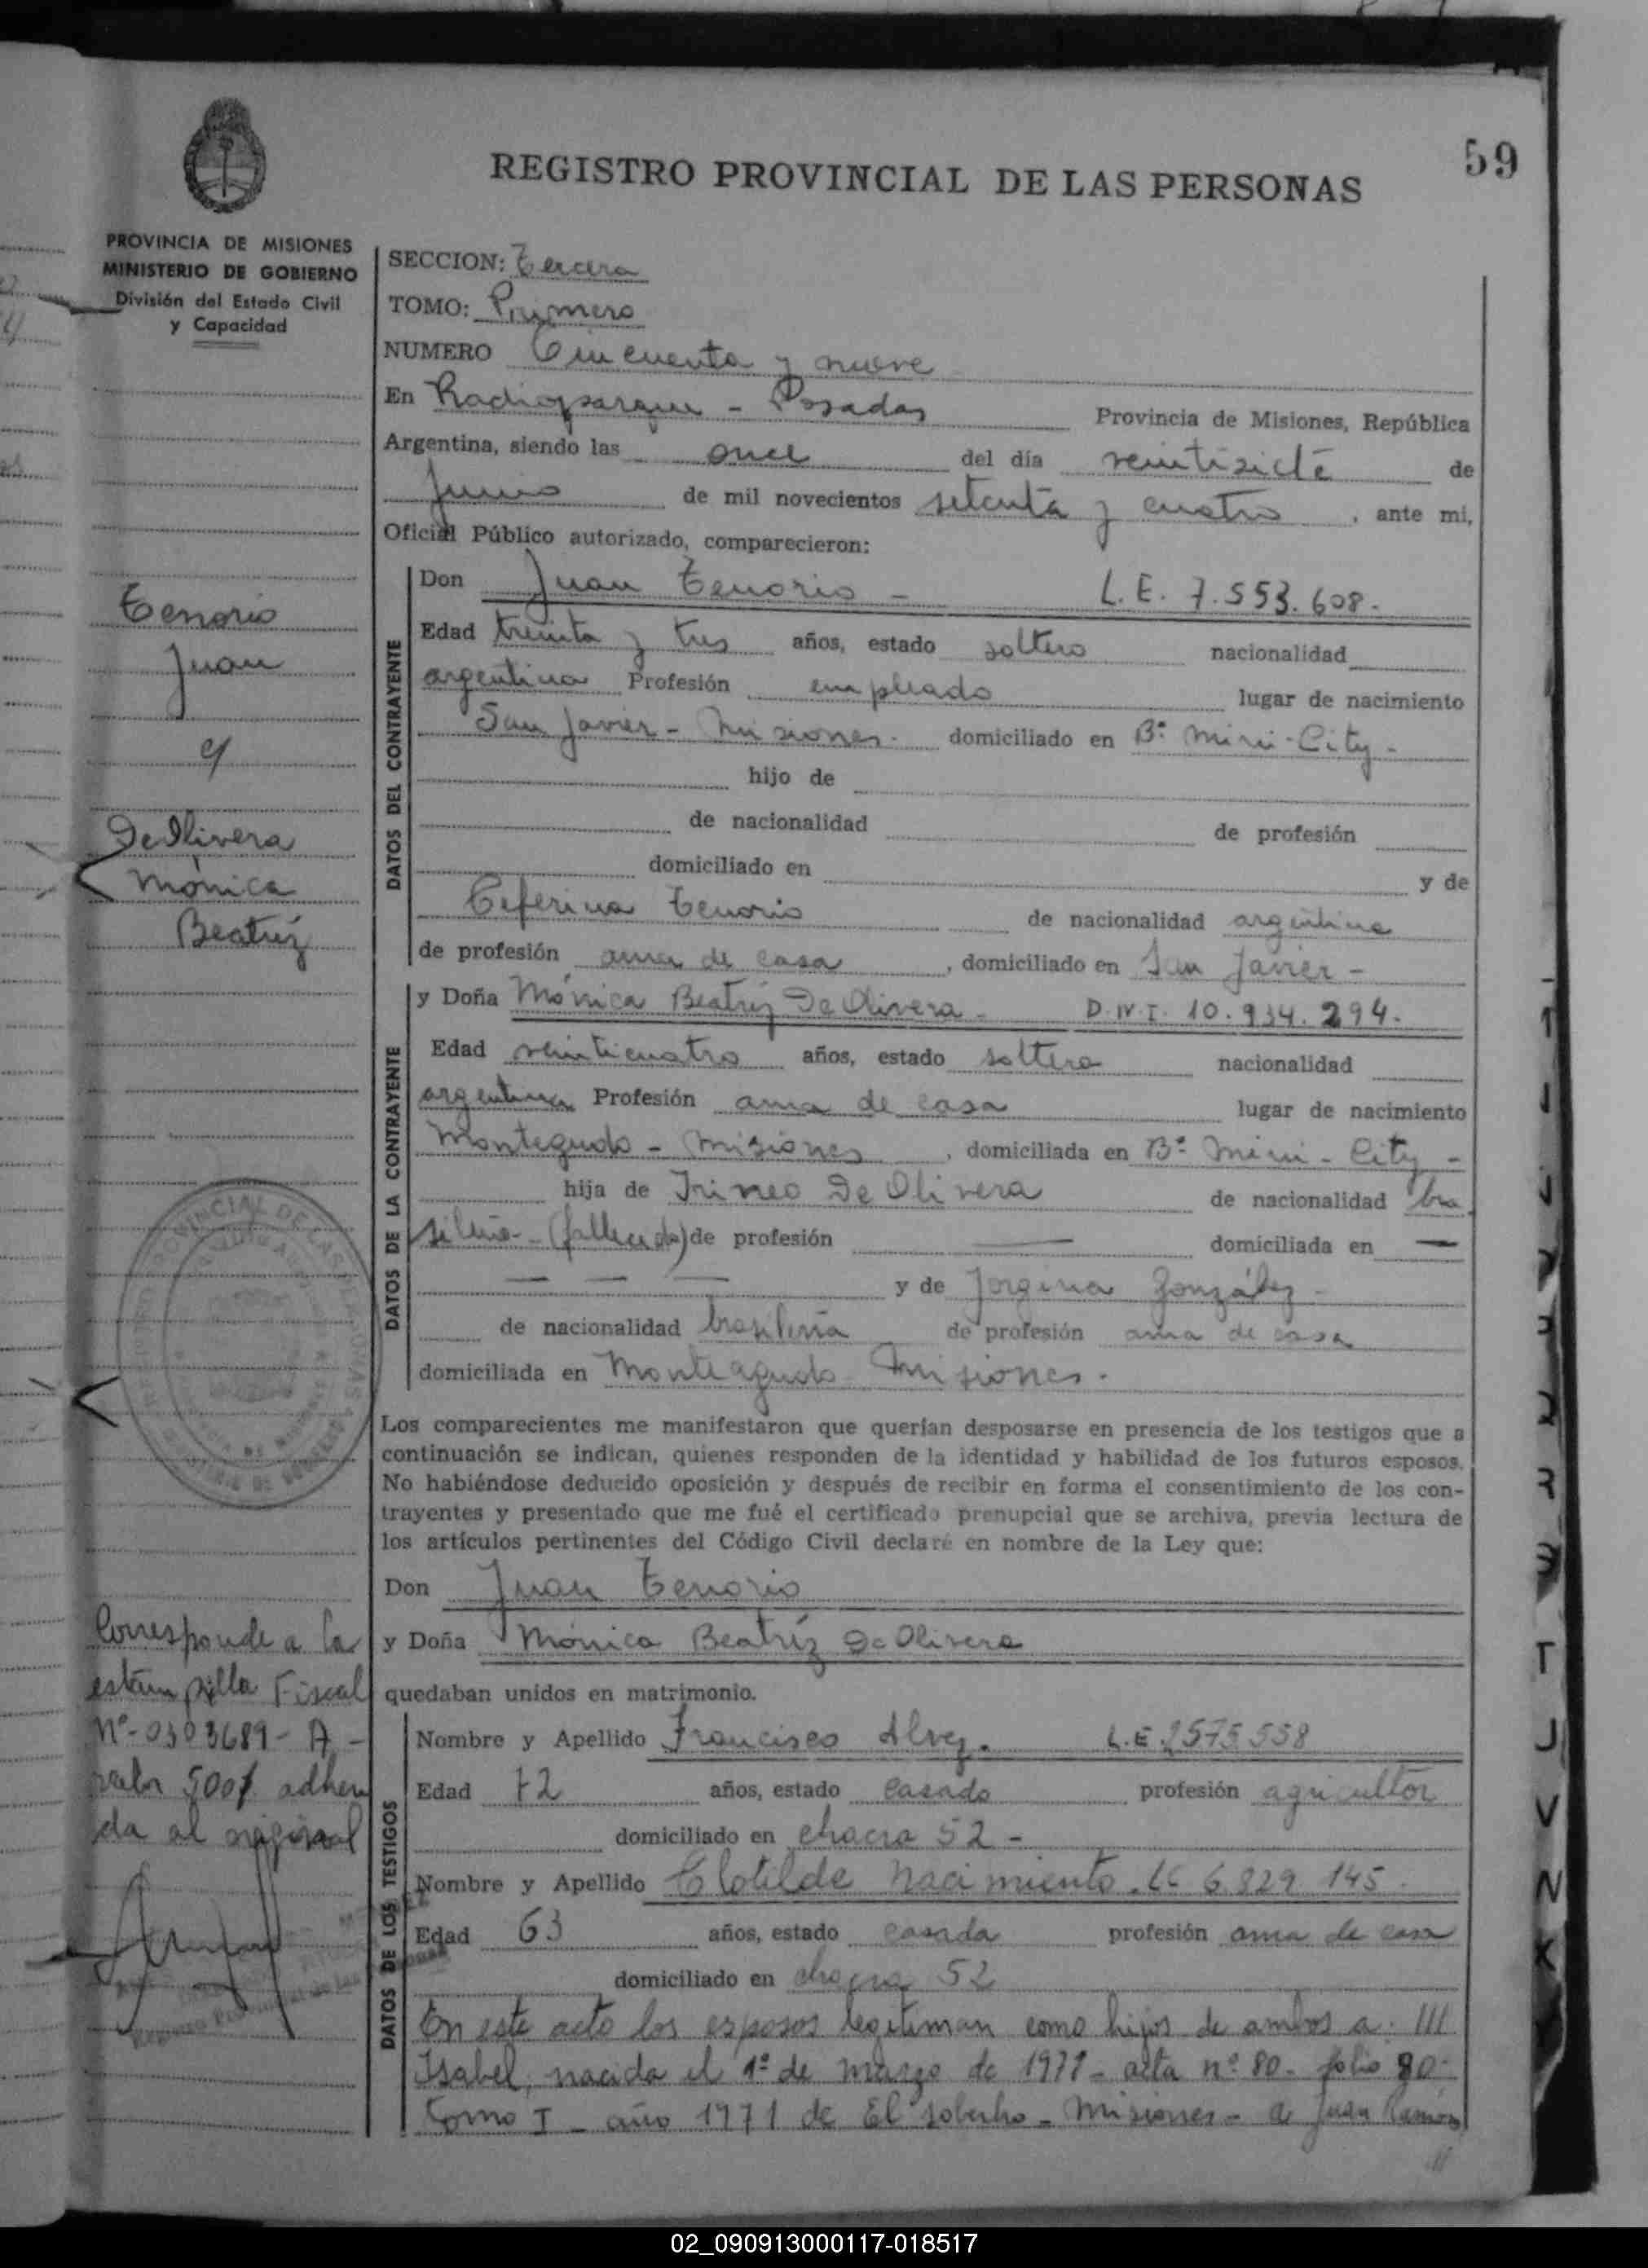 59
REGISTRO PROVINCIAL DE LAS PERSONAS
PROVINCIA DE MISIONES
MINISTERIO DE GOBIERNO
División del Estado Civil
y Capacidad
SECCION: Tercera
TOMO: Primero
NUMERO Cincuenta y nueve
En Radioparque - Posadas Provincia de Misiones, República
Argentina, siendo las once del día veintisiete de
Junio de mil novecientos setenta y cuatro, ante mi,
Oficial Público autorizado, comparecieron:
Tenorio
Juan
c/
De Olivera
Mónica
Beatríz
DATOS DEL CONTRAYENTE
Don Juan Tenorio - L.E. 7.553.608.
Edad treinta y tres años, estado soltero nacionalidad
argentina Profesión empleado lugar de nacimiento
San Javier - Misiones. domiciliado en B° Mini-City -
hijo de
de nacionalidad de profesión
domiciliado en y de
Ceferina Tenorio de nacionalidad argentina
de profesión ama de casa, domiciliado en San Javier -
DATOS DE LA CONTRAYENTE
y Doña Mónica Beatríz De Olivera - D.N.I. 10.934.294.
Edad veinticuatro años, estado soltera nacionalidad
argentina Profesión ama de casa lugar de nacimiento
Monteagudo - Misiones, domiciliada en B° Mini - City -
hija de Irineo De Olivera de nacionalidad bra
sileña - (fallecido) de profesión — domiciliada en —
— — — y de Jorgina González -
de nacionalidad brasileña de profesión ama de casa
domiciliada en Monteagudo Misiones.
Los comparecientes me manifestaron que querían desposarse en presencia de los testigos que a
continuación se indican, quienes responden de la identidad y habilidad de los futuros esposos.
No habiéndose deducido oposición y después de recibir en forma el consentimiento de los con-
trayentes y presentado que me fué el certificado prenupcial que se archiva, previa lectura de
los artículos pertinentes del Código Civil declaré en nombre de la Ley que:
Don Juan Tenorio
y Doña Mónica Beatríz De Olivera
quedaban unidos en matrimonio.
Corresponde a la
estampilla Fiscal
N°-0303689- A -
valor 500 adheri
da al original
DATOS DE LOS TESTIGOS
Nombre y Apellido Francisco Alvez. L.E. 2575558
Edad 72 años, estado casado profesión agricultor
domiciliado en chacra 52 -
Nombre y Apellido Clotilde Nacimiento. LC 6.829 145.
Edad 63 años, estado casada profesión ama de casa
domiciliado en chacra 52
En este acto los esposos legitiman como hijos de ambos a: ///
Isabel, nacida el 1° de marzo de 1971 - acta n° 80 - folio 80-
Tomo I - año 1971 de El Soberbio - Misiones - a Juan Ramón
02_090913000117-018517